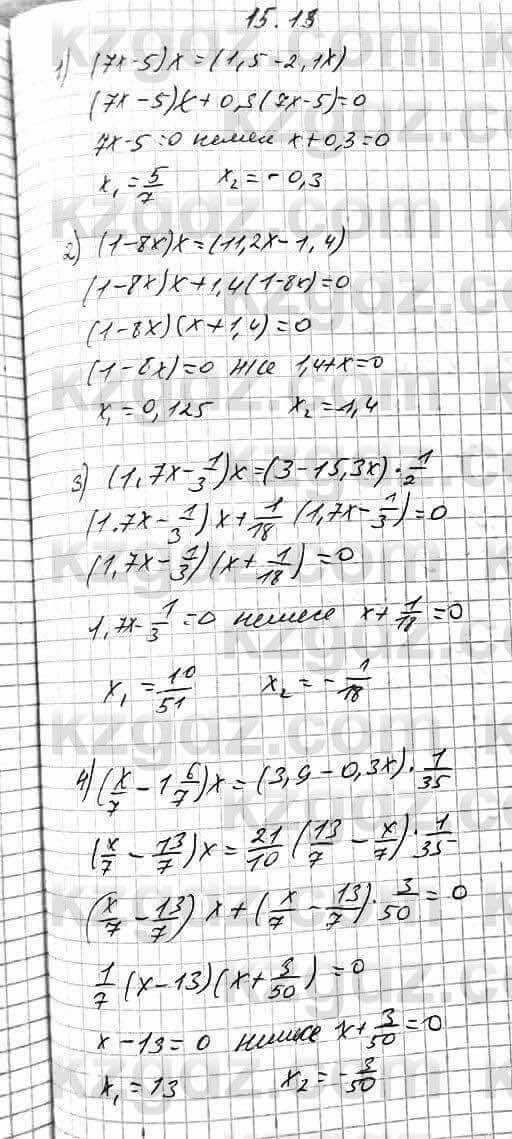 15.13
1) (7x-5)x=(1,5-2,1x)
(7x-5)x+0,3(7x-5)=0
7x-5=0 немесе x+0,3=0
x₁=5/7 x₂=-0,3
2) (1-8x)x=(11,2x-1,4)
(1-8x)x+1,4(1-8x)=0
(1-8x)(x+1,4)=0
(1-8x)=0 н/се 1,4+x=0
x₁=0,125 x₂=-1,4
3) (1,7x-1/3)x=(3-15,3x)·1/2
(1.7x-1/3)x+1/18(1,7x-1/3)=0
(1,7x-1/3)(x+1/18)=0
1,7x-1/3=0 немесе x+1/18=0
x₁=10/51 x₂=-1/18
4) (x/7-1 6/7)x=(3,9-0,3x)·1/35
(x/7-13/7)x=21/10(13/7-x/7)·1/35
(x/7-13/7)x+(x/7-13/7)·3/50=0
1/7(x-13)(x+3/50)=0
x-13=0 немесе x+3/50=0
x₁=13 x₂=-3/50
kzgdz.com